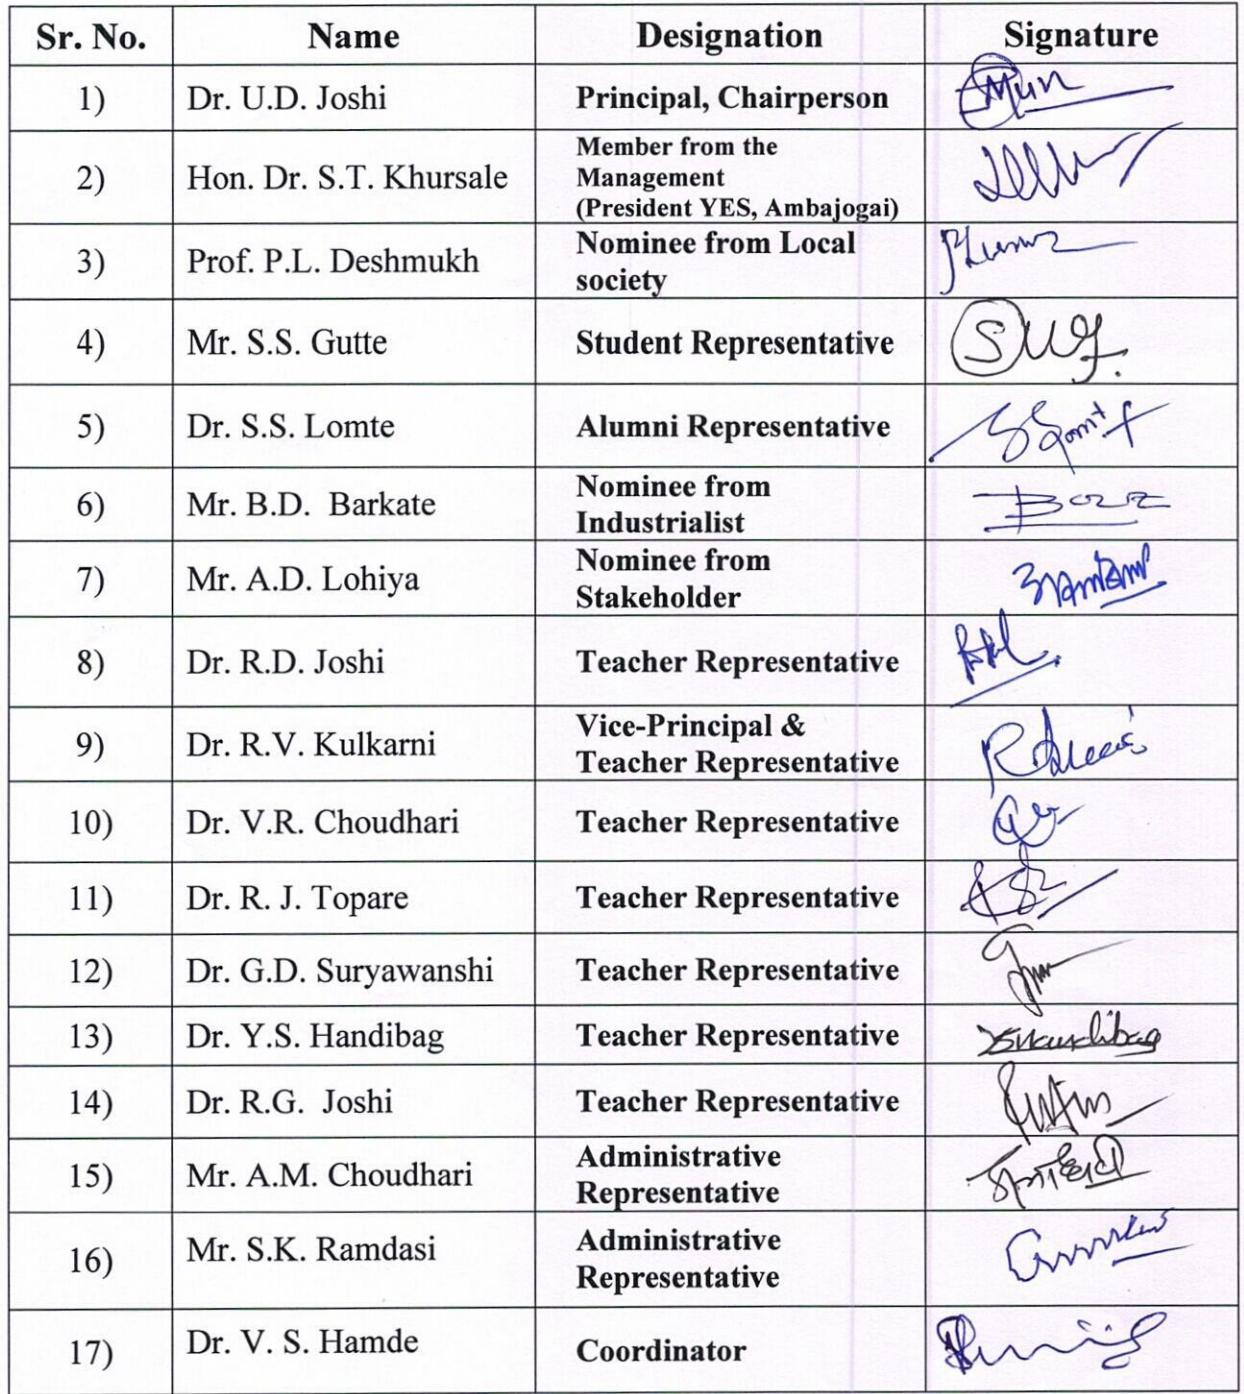 Sr. No. Name Designation Signature
1) Dr. U.D. Joshi Principal, Chairperson
2) Hon. Dr. S.T. Khursale Member from the
Management
(President YES, Ambajogai)
3) Prof. P.L. Deshmukh Nominee from Local
society
4) Mr. S.S. Gutte Student Representative
5) Dr. S.S. Lomte Alumni Representative
6) Mr. B.D. Barkate Nominee from
Industrialist
7) Mr. A.D. Lohiya Nominee from
Stakeholder
8) Dr. R.D. Joshi Teacher Representative
9) Dr. R.V. Kulkarni Vice-Principal &
Teacher Representative
10) Dr. V.R. Choudhari Teacher Representative
11) Dr. R. J. Topare Teacher Representative
12) Dr. G.D. Suryawanshi Teacher Representative
13) Dr. Y.S. Handibag Teacher Representative
14) Dr. R.G. Joshi Teacher Representative
15) Mr. A.M. Choudhari Administrative
Representative
16) Mr. S.K. Ramdasi Administrative
Representative
17) Dr. V. S. Hamde Coordinator